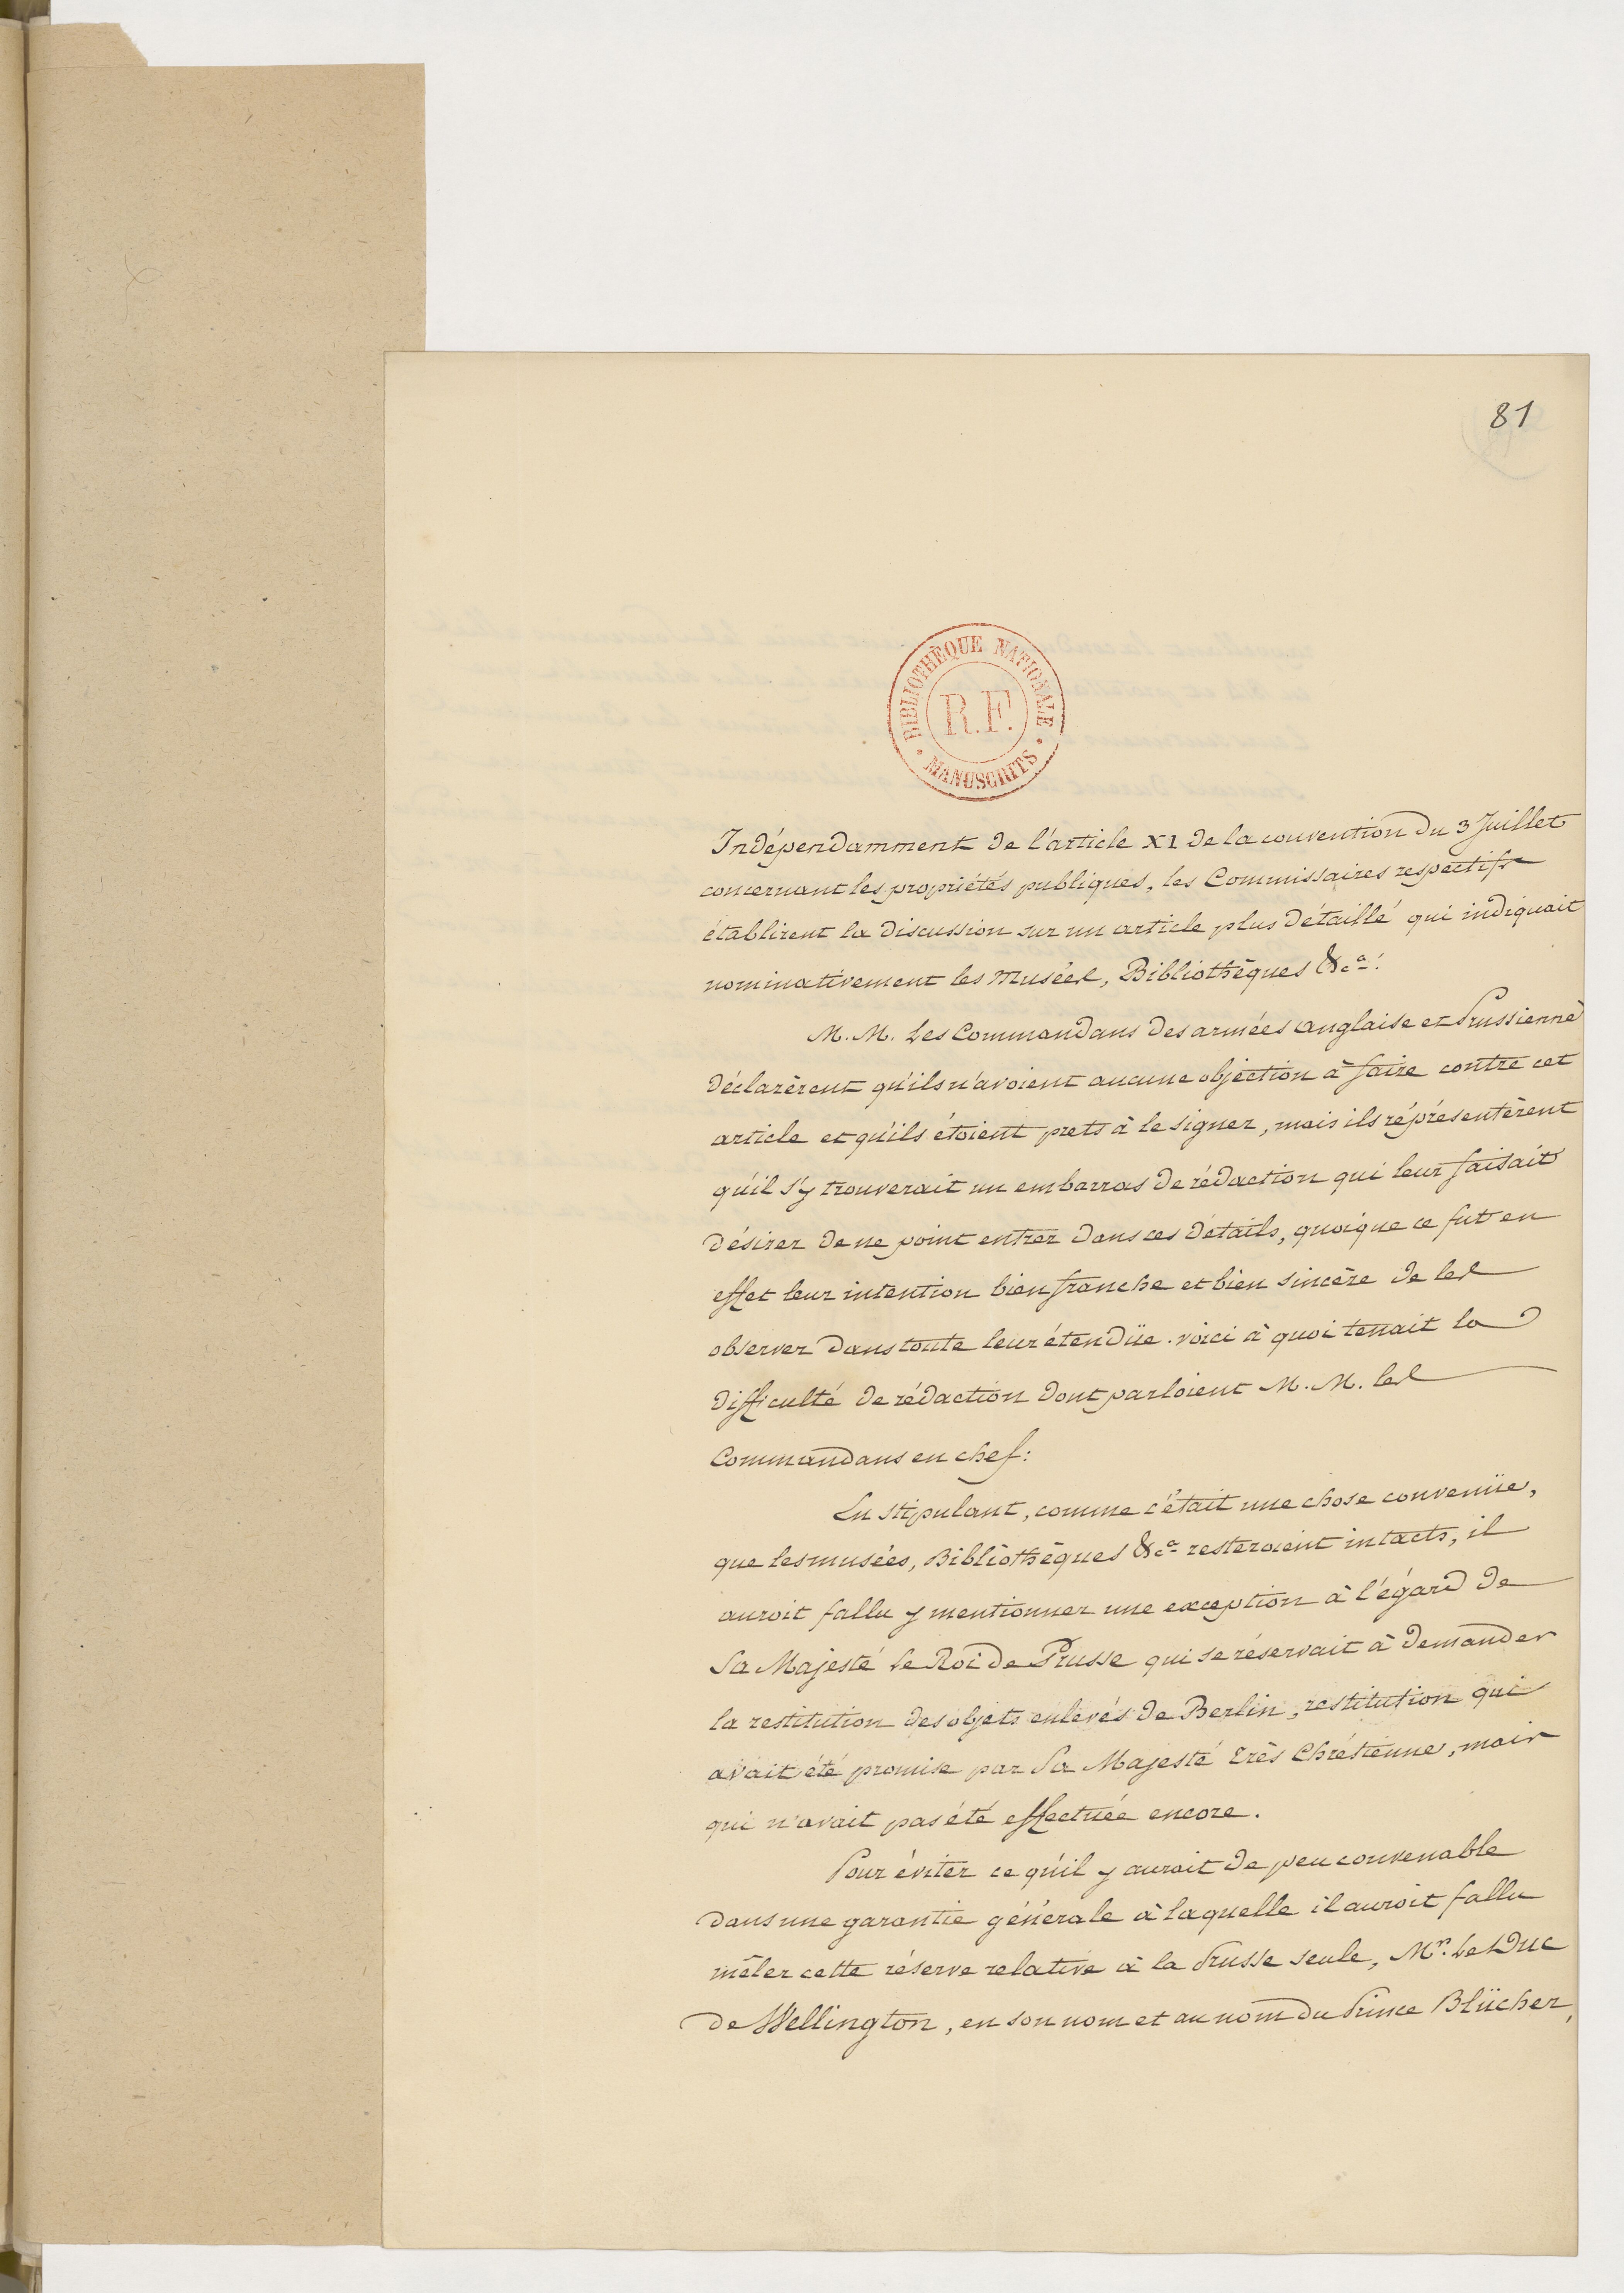 81
BIBLIOTHÈQUE NATIONALE
R.F.
MANUSCRITS
Indépendamment de l'article XI de la convention du 3 Juillet
concernant les propriétés publiques, les Commissaires respectifs
établirent la discussion sur un article plus détaillé qui indiquait
nominativement les Musées, Bibliothèques &ca.
M. M. Les Commandans des armées anglaise et Prussienne
déclarèrent qu'ils n'avoient aucune objection à faire contre cet
article et qu'ils étoient prets à le signer, mais ils réprésentèrent
qu'il s'y trouverait un embarras de rédaction qui leur faisait
désirer de ne point entrer dans ces détails, quoique ce fut en
effet leur intention bien franche et bien sincère de les
observer dans toute leur étendüe. voici à quoi tenait la
difficulté de rédaction dont parloient M. M. les
Commandans en chef:
En stipulant, comme c'était une chose convenüe,
que les musées, Bibliothèques &ca resteroient intacts, il
auroit fallu y mentionner une exception à l'égard de
Sa Majesté le Roi de Prusse qui se réservait à demander
la restitution des objets enlevés de Berlin, restitution qui
avait été promise par Sa Majesté très Chrétienne, mais
qui n'avait pas été effectuée encore.
Pour éviter ce qu'il y auroit de peu convenable
dans une garantie générale à laquelle il auroit fallu
mêler cette réserve relative à la Prusse seule, Mr. Le Duc
de Wellington, en son nom et au nom du Prince Blücher,